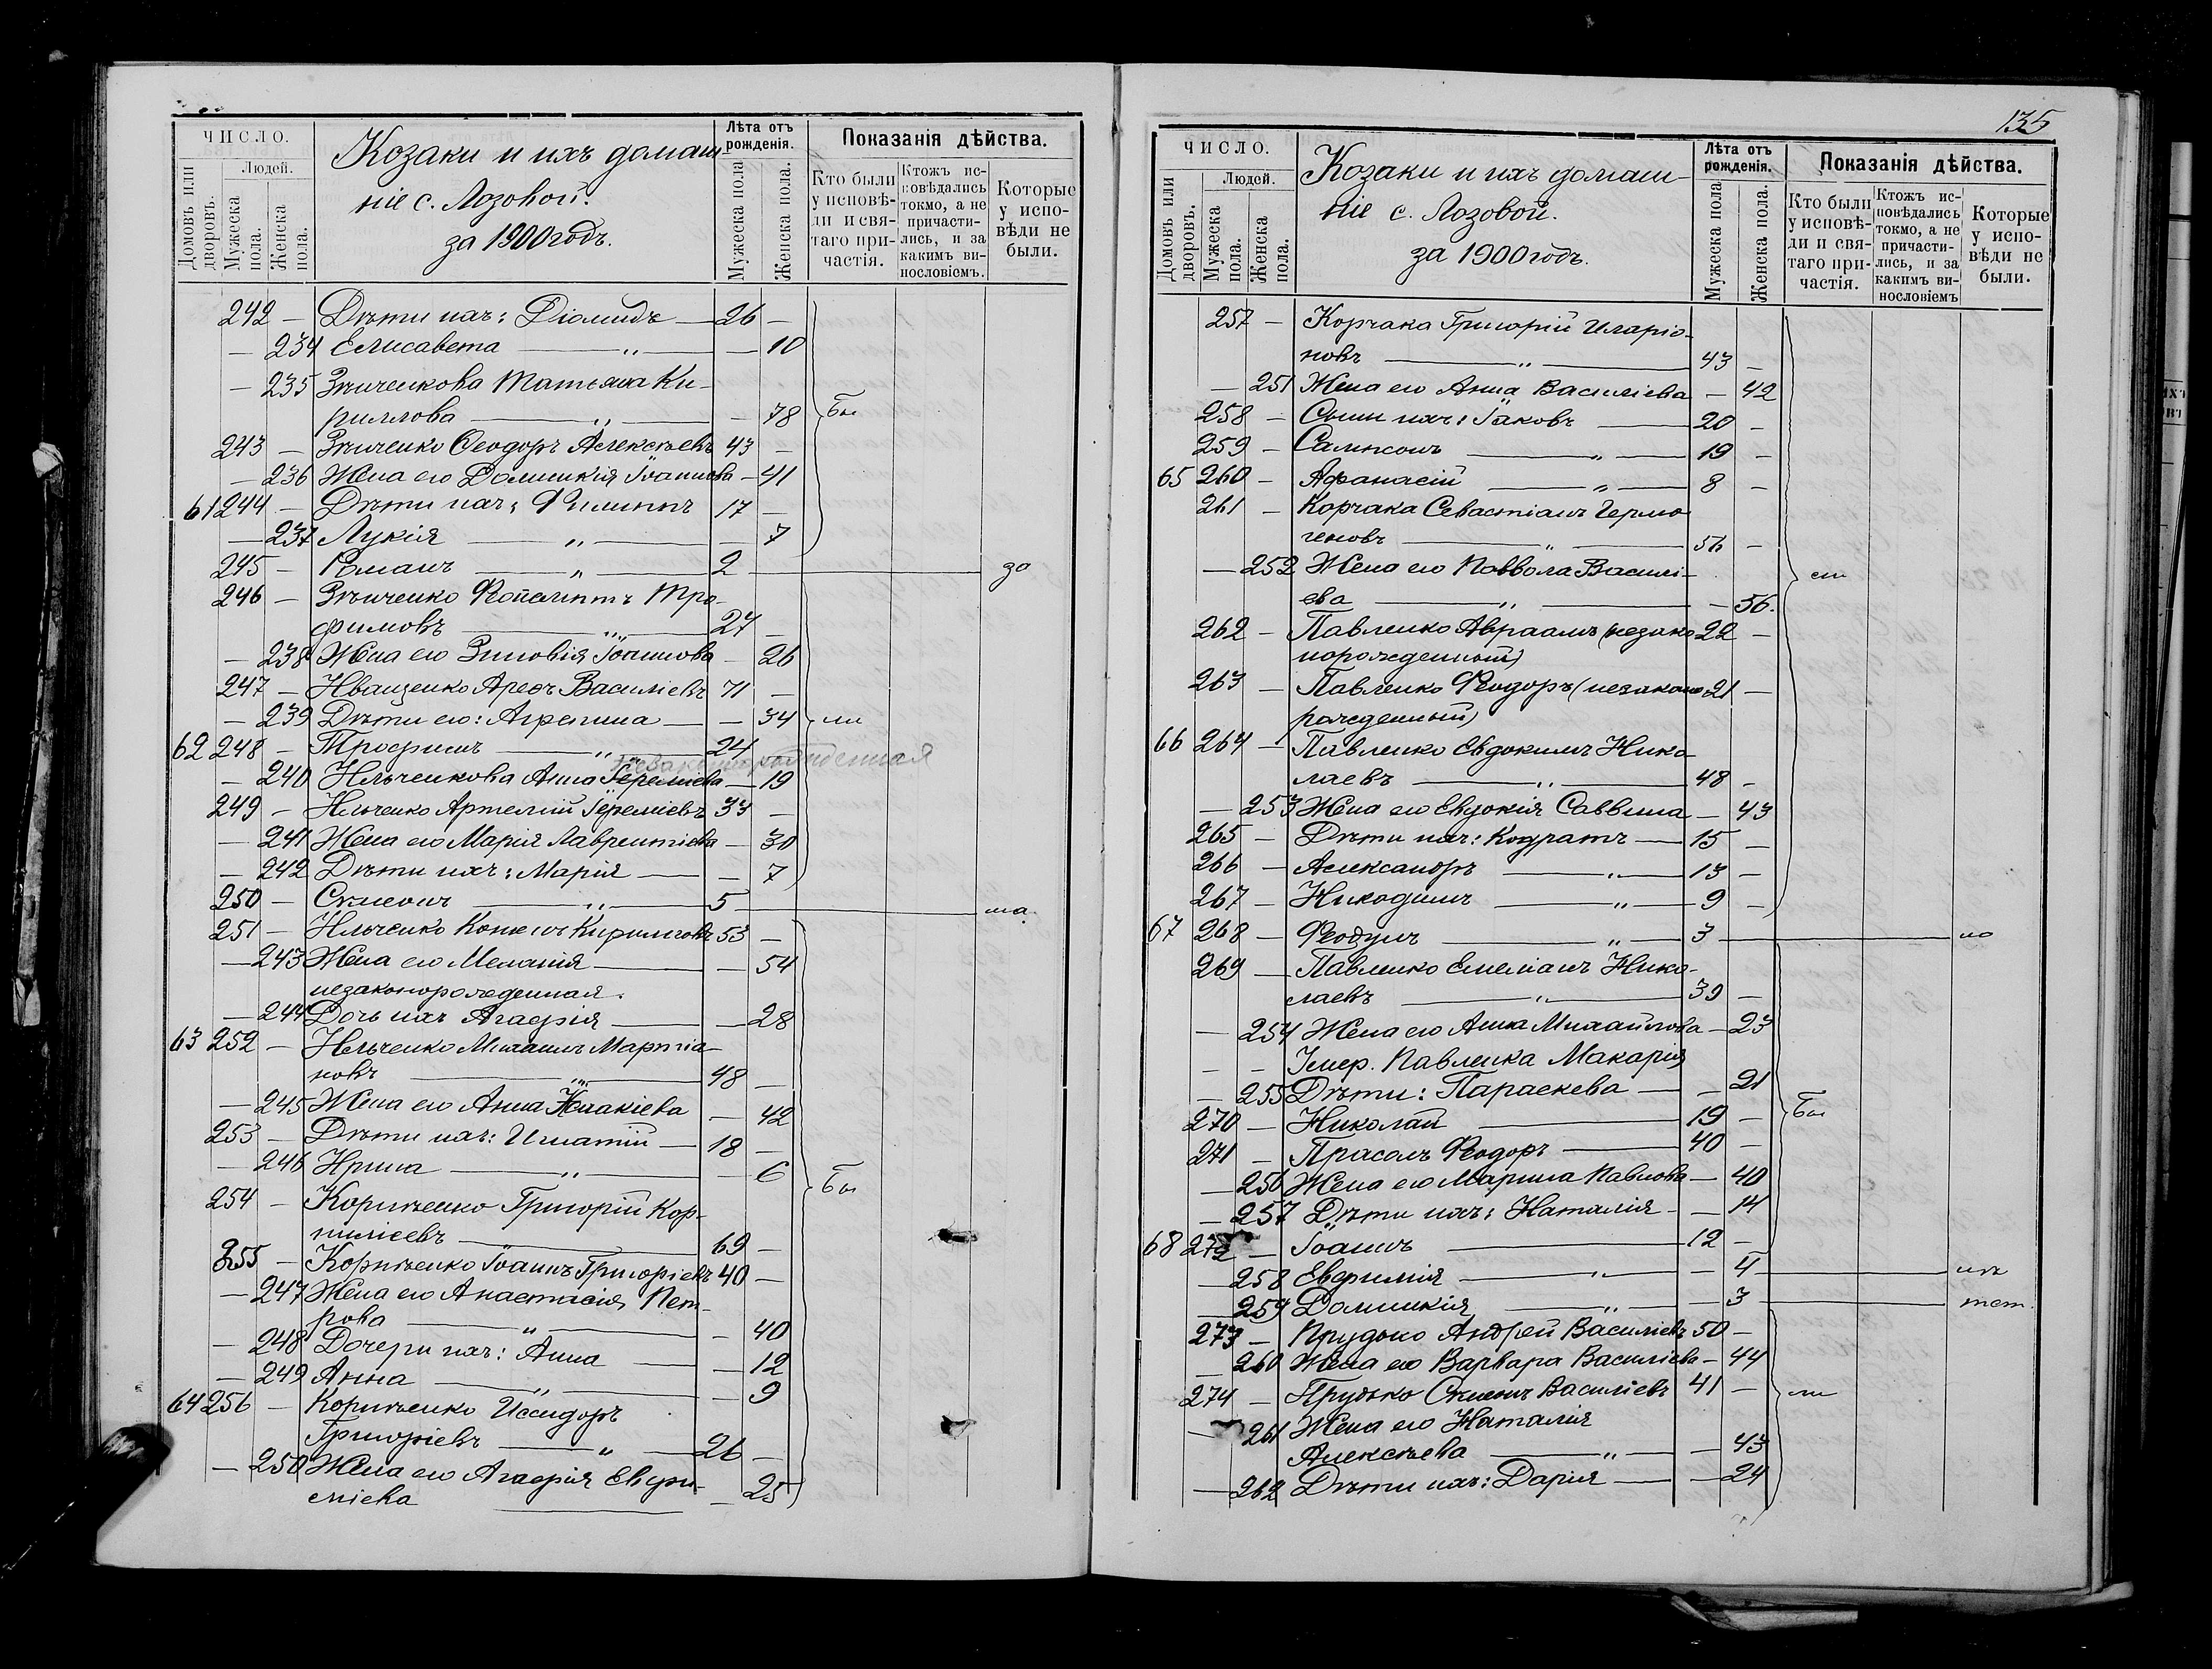 ЧИСЛО.
Домовъ или дворовъ.
Людей.
Мужеска пола.
Женска пола.
Козаки и ихъ домаш
ніе с. Лозовой.
за 1900 годъ.
Лѣта отъ рожденія.
Мужеска пола
Женска пола.
Показанія дѣйства.
Кто были у исповѣди и святаго причастія.
Ктожъ исповѣдались токмо, а не причастились, и за какимъ винословіемъ.
Которые у исповѣди не были.
242 — Дѣти ихъ: Діомидъ — 26 —
— 234 Елисавета — „ — — 10
— 235 Зѣнченкова Татьяна Ки-
риллова — „ — — 78 бы
243 — Зѣнченко Ѳеодоръ Алексѣевъ 43 —
— 236 Жена его Домникія Іоаннова — 41
61 244 — Дѣти ихъ: Филиппъ 17 —
— 237 Лукія — „ — — 7
245 — Романъ — „ — 2 — за
246 — Зѣнченко Ѳеопемптъ Тро-
фимовъ — „ — 27 —
— 238 Жена его Зиновія Іоаннова — 26
247 — Иващенко Ареѳъ Василіевъ 71 —
— 239 Дѣти его: Агрепина — — 34 ли
62 248 — Трофимъ — „ — 24
незаконнорожденная
— 240 Ильченкова Анна Іереміева — 19
249 — Ильченко Артемій Іереміевъ 33 —
— 241 Жена его Марія Лаврентіева — 30
— 242 Дѣти ихъ: Марія — — 7
250 — Сѵмеонъ — „ — 5 — ма
251 — Ильченко Конон Кирилловъ 53 —
— 243 Жена его Меланія — — 54
незаконорожденная.
— 244 Дочь ихъ Агафія — — 28
63 252 — Ильченко Михаилъ Мартіа-
новъ — „ — 48 —
— 245 Жена его Анна Іоакіева — 42
253 — Дѣти ихъ: Игнатій — 18 —
— 246 Ирина — „ — — 6 бы
254 — Корнѣенко Григорій Кор-
ниліевъ — 69 —
255 — Корнѣенко Іоаннъ Григоріевъ 40 —
— 247 Жена его Анастасія Пет-
рова — „ — — 40
— 248 Дочери ихъ: Анна — — 12
— 249 Анна — „ — — 9
64 256 — Корнѣенко Исидоръ
Григоріевъ — „ — 26 —
— 250 Жена его Агафія Евфи-
міева — — 25
135
ЧИСЛО.
Домовъ или дворовъ.
Людей.
Мужеска пола.
Женска пола.
Козаки и ихъ домаш-
ніе с. Лозовой.
за 1900 годъ.
Лѣта отъ рожденія.
Мужеска пола
Женска пола.
Показанія дѣйства.
Кто были у исповѣди и святаго причастія.
Ктожъ исповѣдались токмо, а не причастились, и за какимъ винословіемъ
Которые у исповѣди не были.
257 — Корчака Григорій Иларіо-
новъ — „ — 43 —
— 251 Жена его Анна Василіева — 42
258 — Сыны ихъ: Іаковъ — 20 —
259 — Сампсонъ — „ — 19 —
65 260 — Афанасій — „ — 8 —
261 — Корчака Севастіанъ Гермо
геновъ — „ — 56 —
— 252 Жена его Паввола Василі- ст
ева — „ — — 56.
262 — Павленко Авраамъ (незако 22 —
норожденный)
263 — Павленко Ѳеодоръ (незакон 21 —
рожденный)
66 264 — Павленко Евдокимъ Нико-
лаевъ — „ — 48 —
— 253 Жена его Евдокія Саввина — 43
265 — Дѣти ихъ: Кодратъ — 15 —
266 — Александръ — „ — 13 —
267 — Никодимъ — „ — 9 —
67 268 — Ѳеодулъ — „ — 3 — ло
269 — Павленко Емеліанъ Нико-
лаевъ — „ — 39 —
— 254 Жена его Анна Михайлова — 23
— — Умер. Павленка Макарія
— 255 Дѣти: Параскева — — 21
270 — Николай — 19 — бы
271 — Прасолъ Ѳеодоръ — 40 —
— 256 Жена его Марина Павлова — 40
— 257 Дѣти ихъ: Наталія — — 14
68 272 — Іоаннъ — 12 —
— 258 Евфимія — „ — — 4 — лѣ
— 259 Домникія — „ — — 3 — тст.
273 — Прудько Андрей Василіевъ 50 —
— 260 Жена его Варвара Василіева — 44
274 — Прудько Сѵмеонъ Василіевъ 41 — ли
— 261 Жена его Наталія
Алексѣева — „ — — 43
— 262 Дѣти ихъ: Дарія — — 24